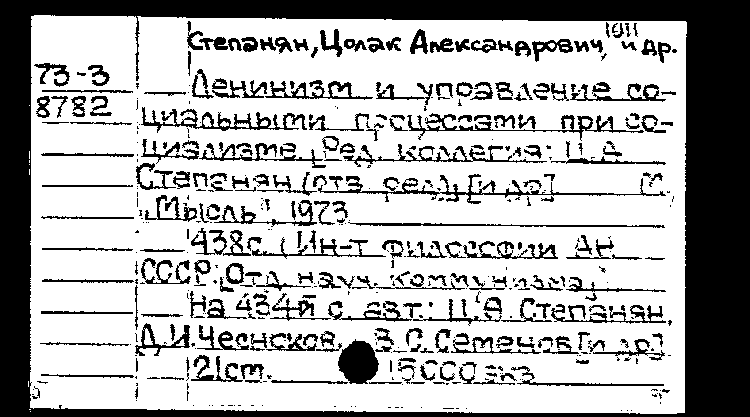 1911
Степанян, Цолак Александрович, и др.
73-3
8782
Ленинизм и управление со-
циальными процессами при со-
циализме. [Ред. коллегия: Ц.А.
Степанян (отв. ред.), [и др.] М.,
"Мысль", 1973
438с. (Ин-т философии АН
СССР. [Отд. науч. коммунизма]
На 434-й с. авт.: Ц.А. Степанян,
Д.И. Чесноков, В.С. Семенов [и др.]
21см. 15000 экз